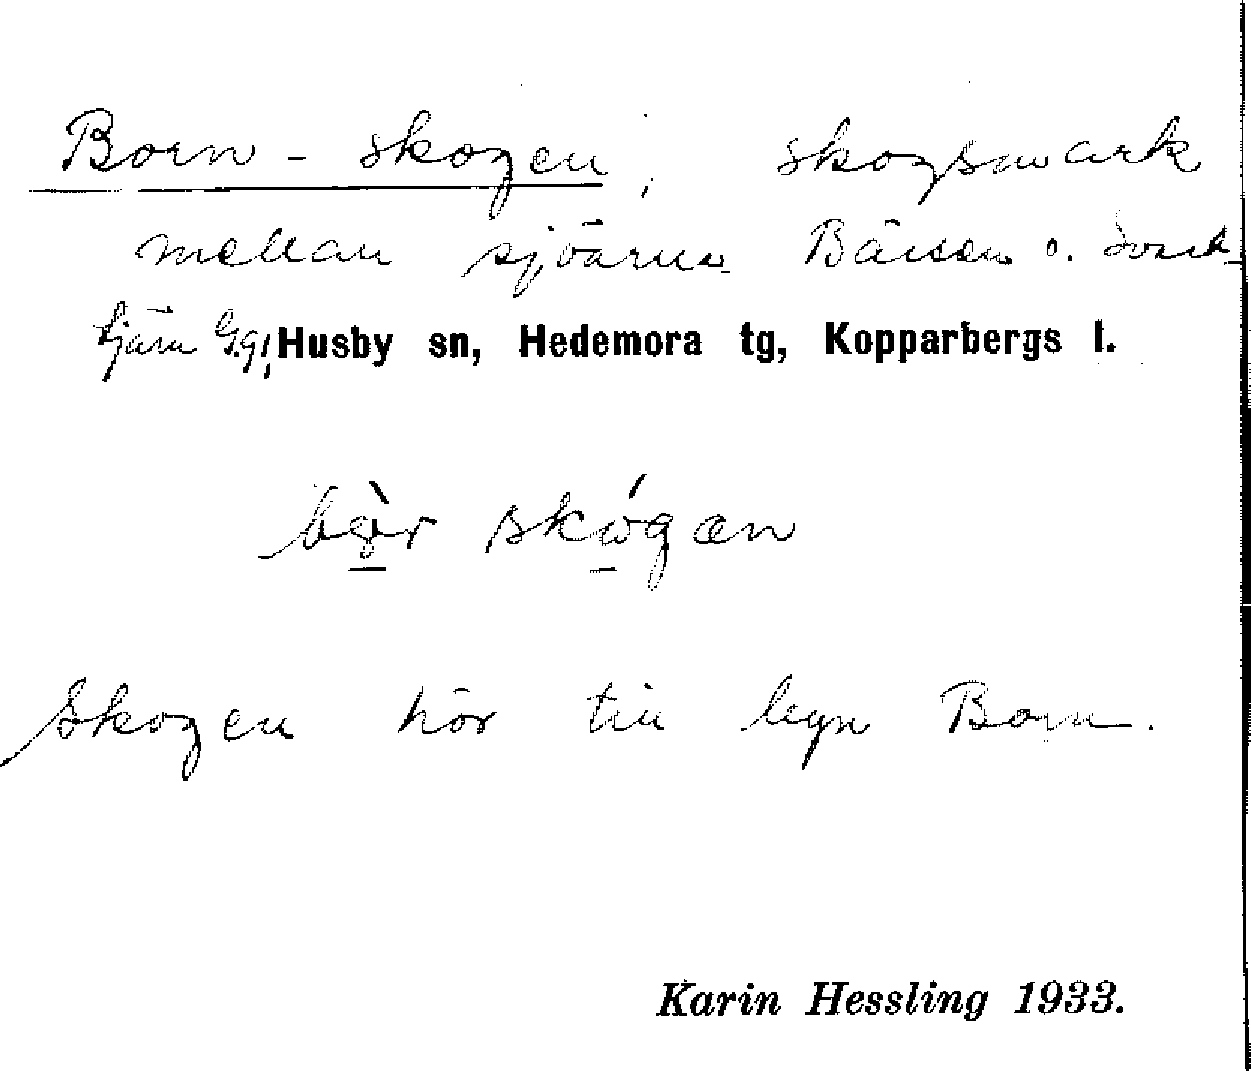 Born-skogen, skogsmark
mellan sjöarna Bärsen o. Svart-
tjärn Gg, Husby sn, Hedemora tg, Kopparbergs l.
skógæn
Skogen hör till byn Born.
Karin Hessling 1933.